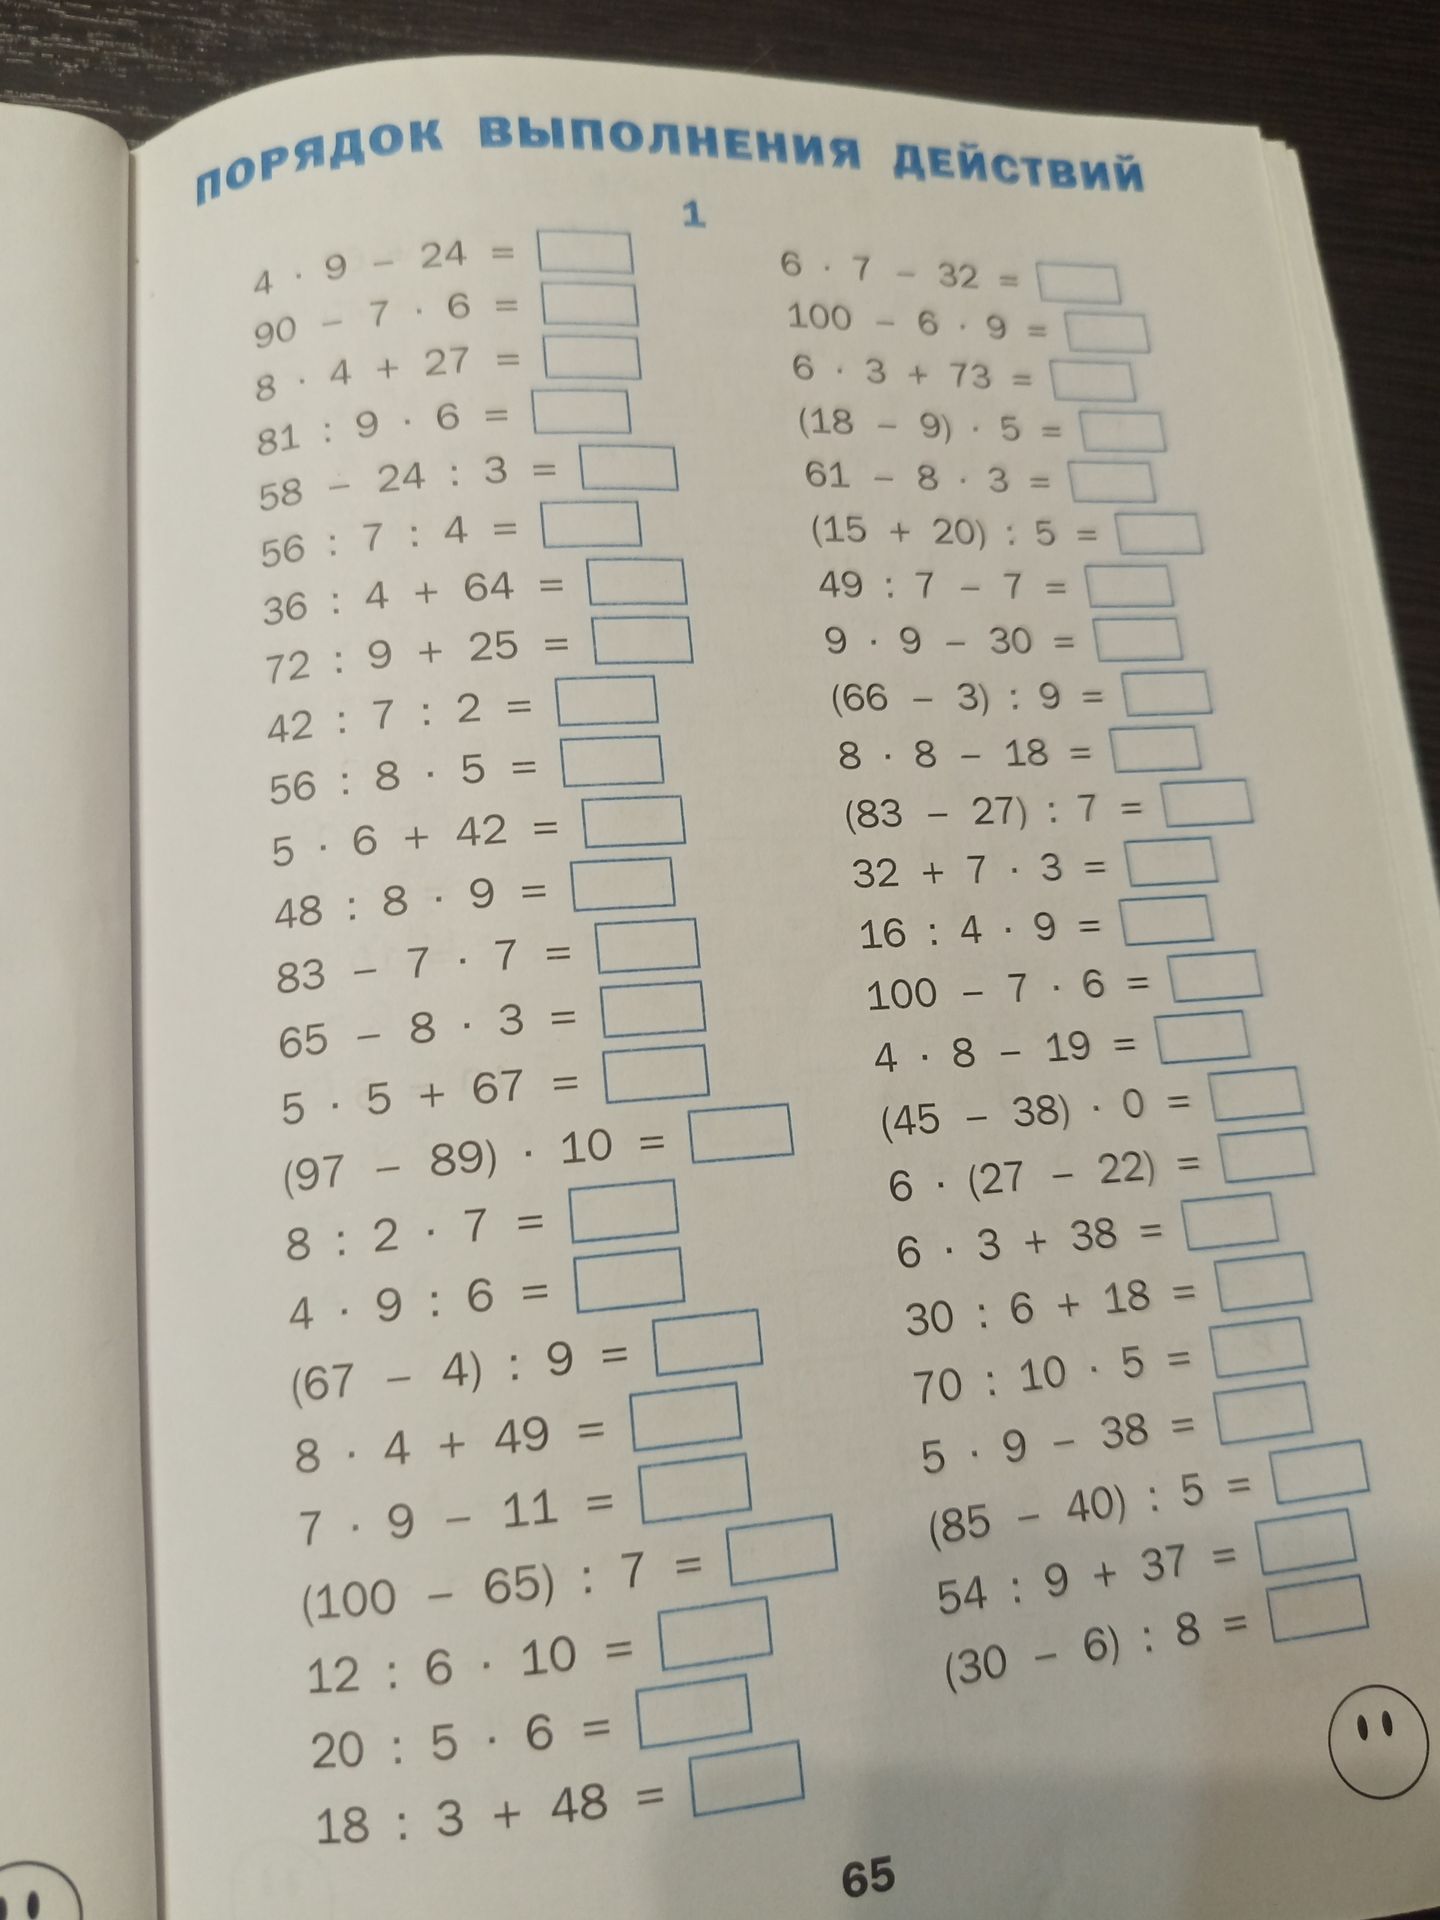 ПОРЯДОК ВЫПОЛНЕНИЯ ДЕЙСТВИЙ
1
4 · 9 – 24 =
90 – 7 · 6 =
8 · 4 + 27 =
81 : 9 · 6 =
58 – 24 : 3 =
56 : 7 : 4 =
36 : 4 + 64 =
72 : 9 + 25 =
42 : 7 : 2 =
56 : 8 · 5 =
5 · 6 + 42 =
48 : 8 · 9 =
83 – 7 · 7 =
65 – 8 · 3 =
5 · 5 + 67 =
(97 – 89) · 10 =
8 : 2 · 7 =
4 · 9 : 6 =
(67 – 4) : 9 =
8 · 4 + 49 =
7 · 9 – 11 =
(100 – 65) : 7 =
12 : 6 · 10 =
20 : 5 · 6 =
18 : 3 + 48 =
6 · 7 – 32 =
100 – 6 · 9 =
6 · 3 + 73 =
(18 – 9) · 5 =
61 – 8 · 3 =
(15 + 20) : 5 =
49 : 7 – 7 =
9 · 9 – 30 =
(66 – 3) : 9 =
8 · 8 – 18 =
(83 – 27) : 7 =
32 + 7 · 3 =
16 : 4 · 9 =
100 – 7 · 6 =
4 · 8 – 19 =
(45 – 38) · 0 =
6 · (27 – 22) =
6 · 3 + 38 =
30 : 6 + 18 =
70 : 10 · 5 =
5 · 9 – 38 =
(85 – 40) : 5 =
54 : 9 + 37 =
(30 – 6) : 8 =
65